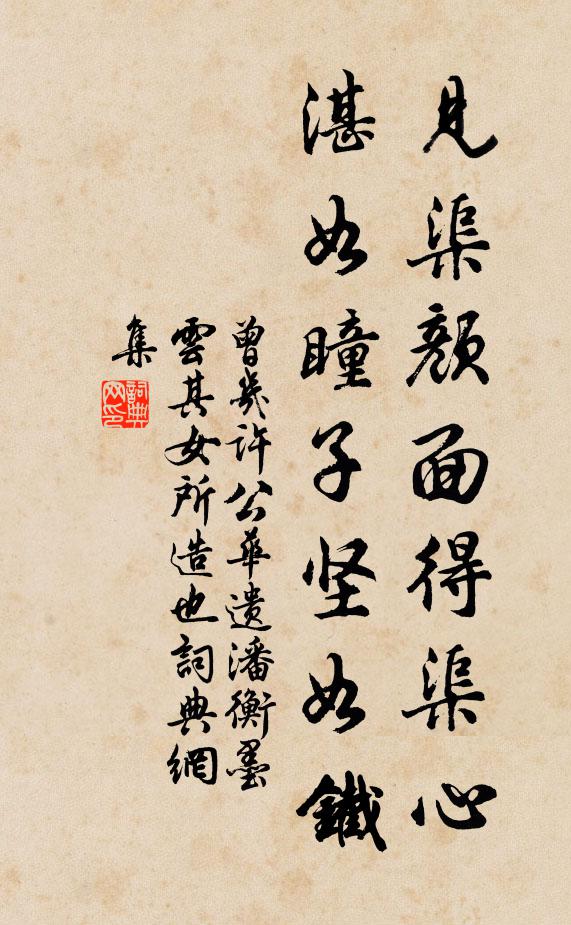 見渠顏面得渠心
湛如瞳子坚如鐵
曾幾许公華遗潘衡墨
雲其女所造也詞典網
集
詞典网印